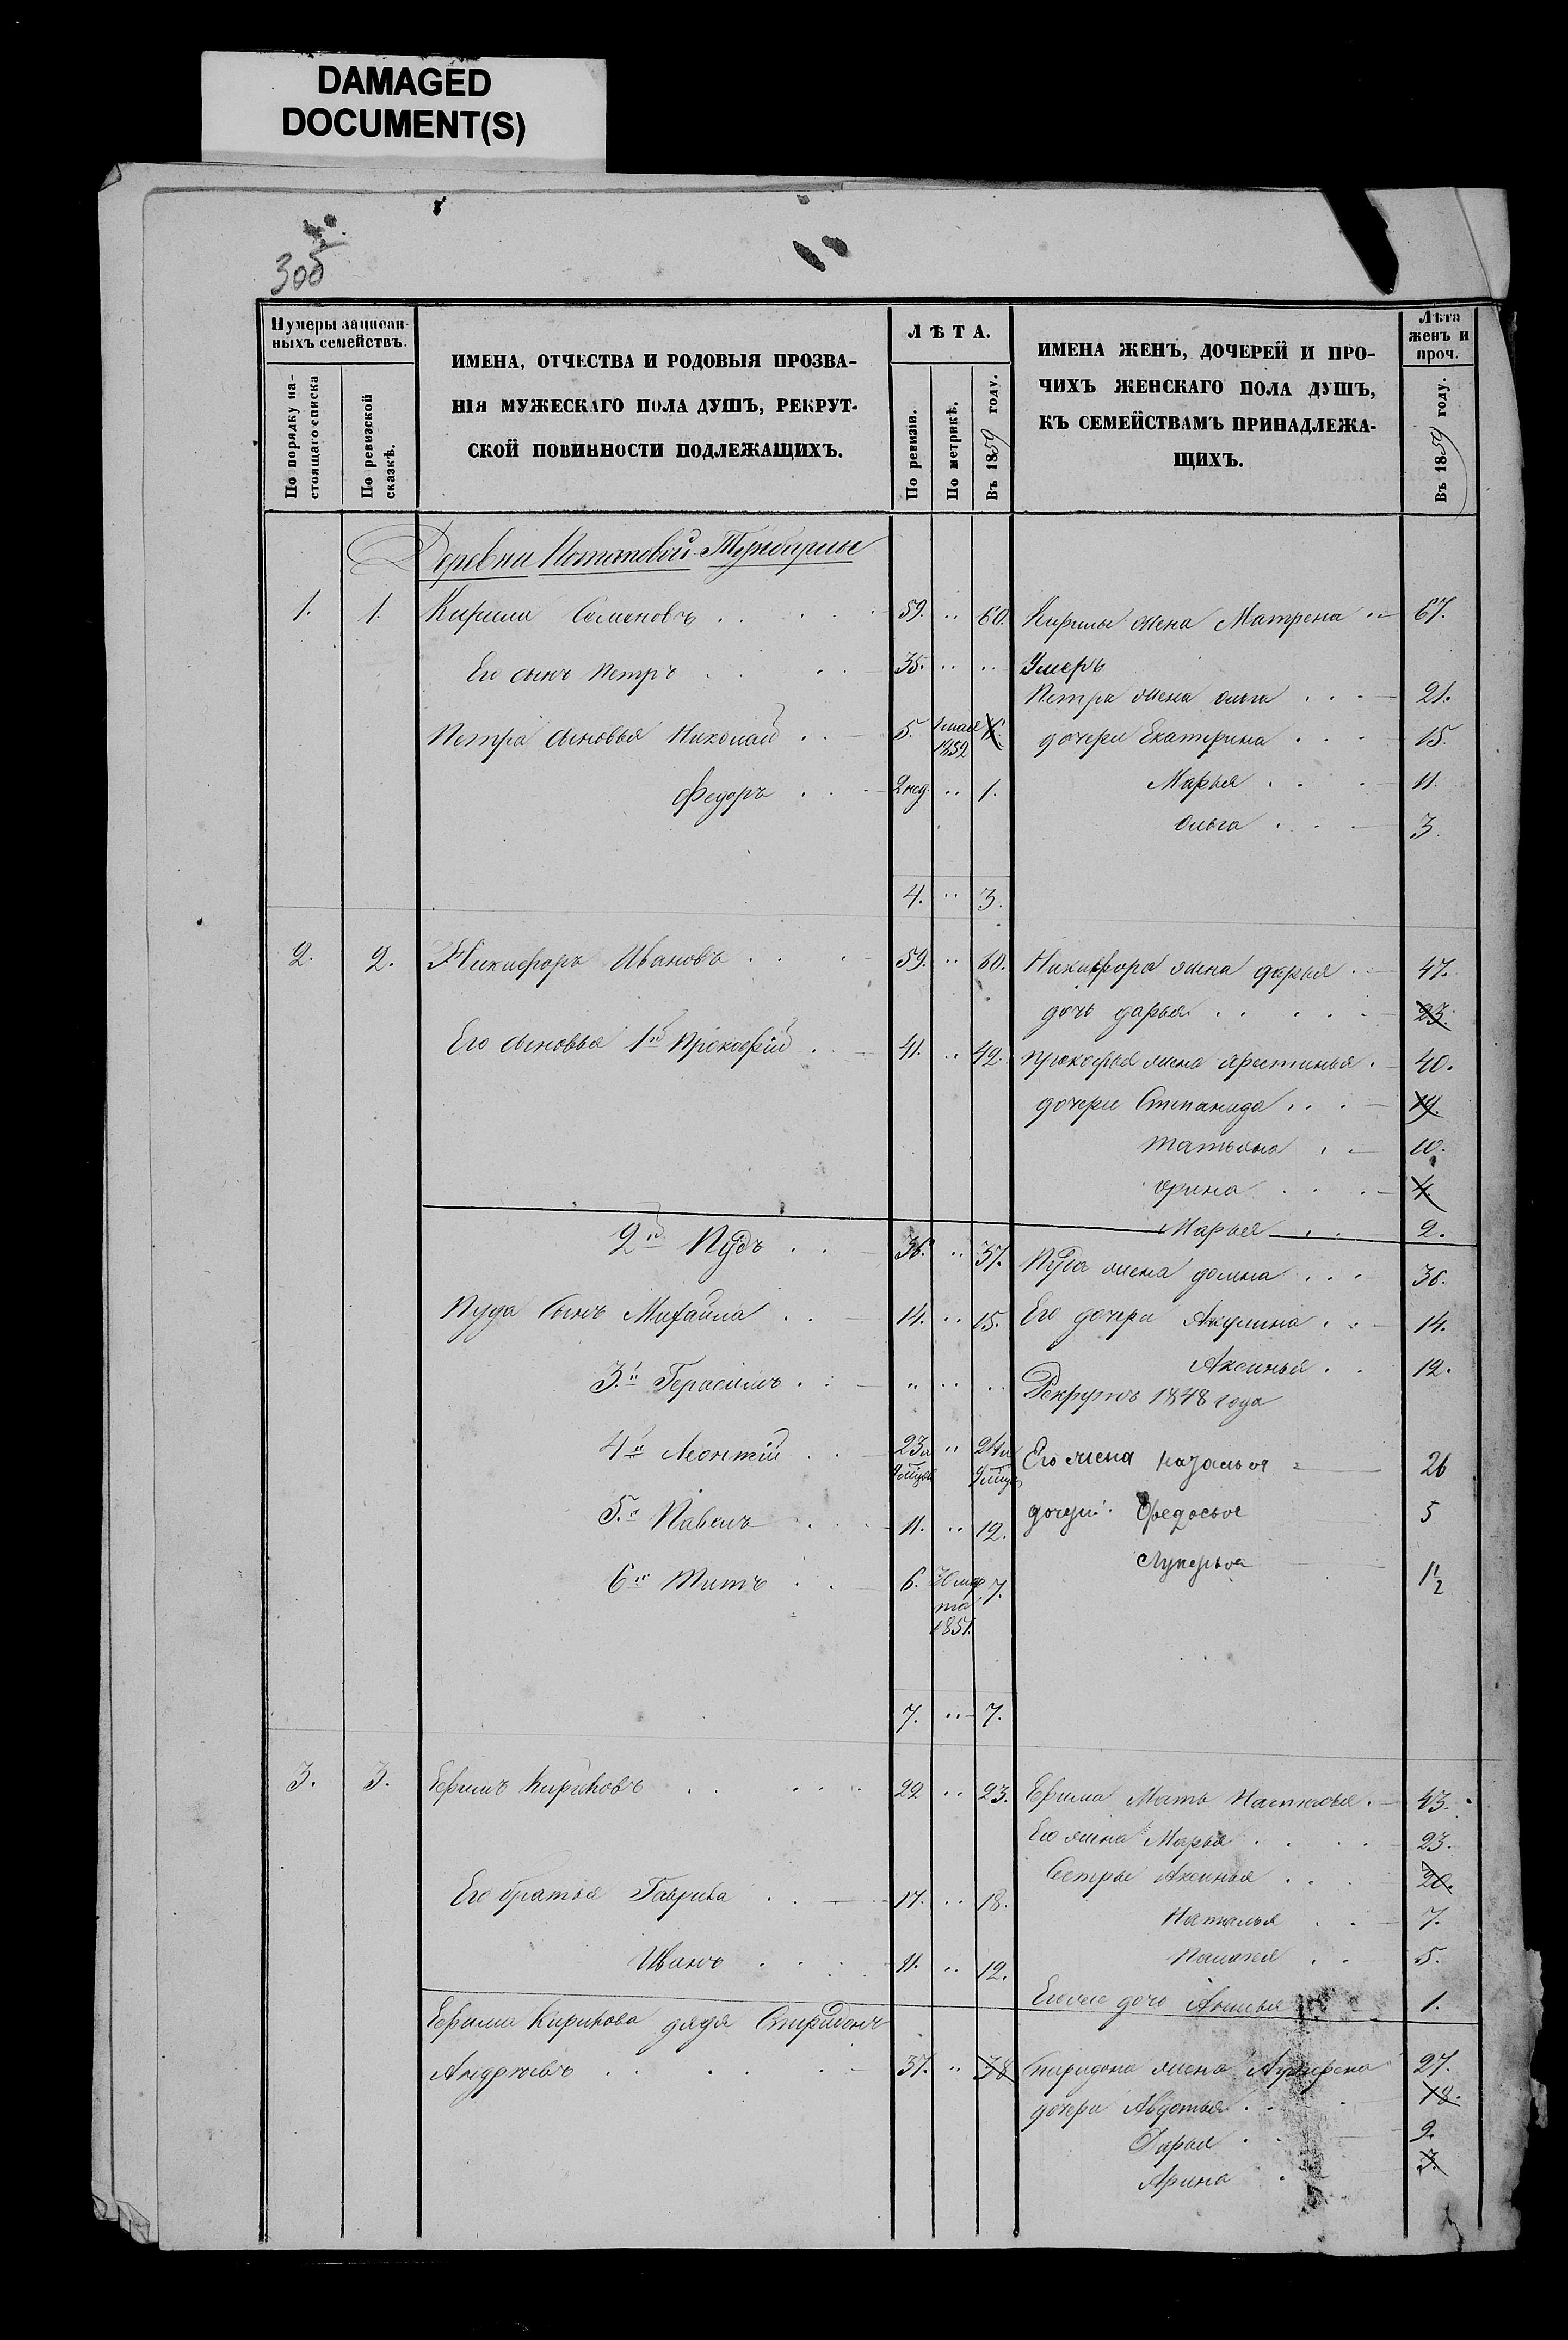 DAMAGED
DOCUMENT(S)
305
Нумеры записан-
ныхъ семействъ.
По порядку на-
стоящаго списка
По ревизской
сказкѣ.
ИМЕНА, ОТЧЕСТВА И РОДОВЫЯ ПРОЗВА-
НІЯ МУЖЕСКАГО ПОЛА ДУШЪ, РЕКРУТ-
СКОЙ ПОВИННОСТИ ПОДЛЕЖАЩИХЪ.
ЛѢТА.
По ревизіи.
По метрикѣ.
Въ 1859 году.
ИМЕНА ЖЕНЪ, ДОЧЕРЕЙ И ПРО-
ЧИХЪ ЖЕНСКАГО ПОЛА ДУШЪ,
КЪ СЕМЕЙСТВАМЪ ПРИНАДЛЕЖА-
ЩИХЪ.
Лѣта
женъ и
проч.
Въ 1859 году.
Деревни Потаповой-Тумбарлы
1. 1. Кирила Семеновъ 59. 60. Кирилы жена Матрена 67.
Его сынъ Петръ 35. Умеръ
Петра жена Ольга 21.
Петра сыновья Николай 5. 1 мая 1852 6. дочери Екатерина 15.
Федоръ 2 нед. 1. Марья 11.
Ольга 3.
4. 3.
2. 2. Никифоръ Ивановъ 59. 60. Никифора жена дарья 47.
дочь дарья 23.
Его сыновья 1й Прокофій 41. 42. прокофья жена 40.
дочери Степанида 19.
татьяна 10.
орина 4.
Марья 2.
2й Пудъ 36. 37. Пуда жена домна 36.
Пуда Сынъ Михайла 14. 15. Его дочери Акулина 14.
Аксинья 12.
3й Герасимъ Рекрутъ 1848 года
4й Леонтій 23 л 9 мѣся 24 л 9 мѣся Его жена Наталья 26
5й Павелъ 11. 12. дочери: Федосья 5
6й Титъ 6. 30 мар та 1851. 7. Лукерья 1½
7. 7.
3. 3. Ефимъ Кириковъ 22 23. Ефима Мать Настасья 43.
Его жена Марья 23.
Сестры Аксинья 20.
Его братья Гаврила 17. 18.
Наталья 7.
Иванъ 11. 12. Палагея 5.
Его же дочь 1.
Ефима Кирикова дядя Спиридонъ
Андреевъ 37. 38 Спиридона жена 27.
дочери Авдотья 18.
Дарья 9.
Арина 3.